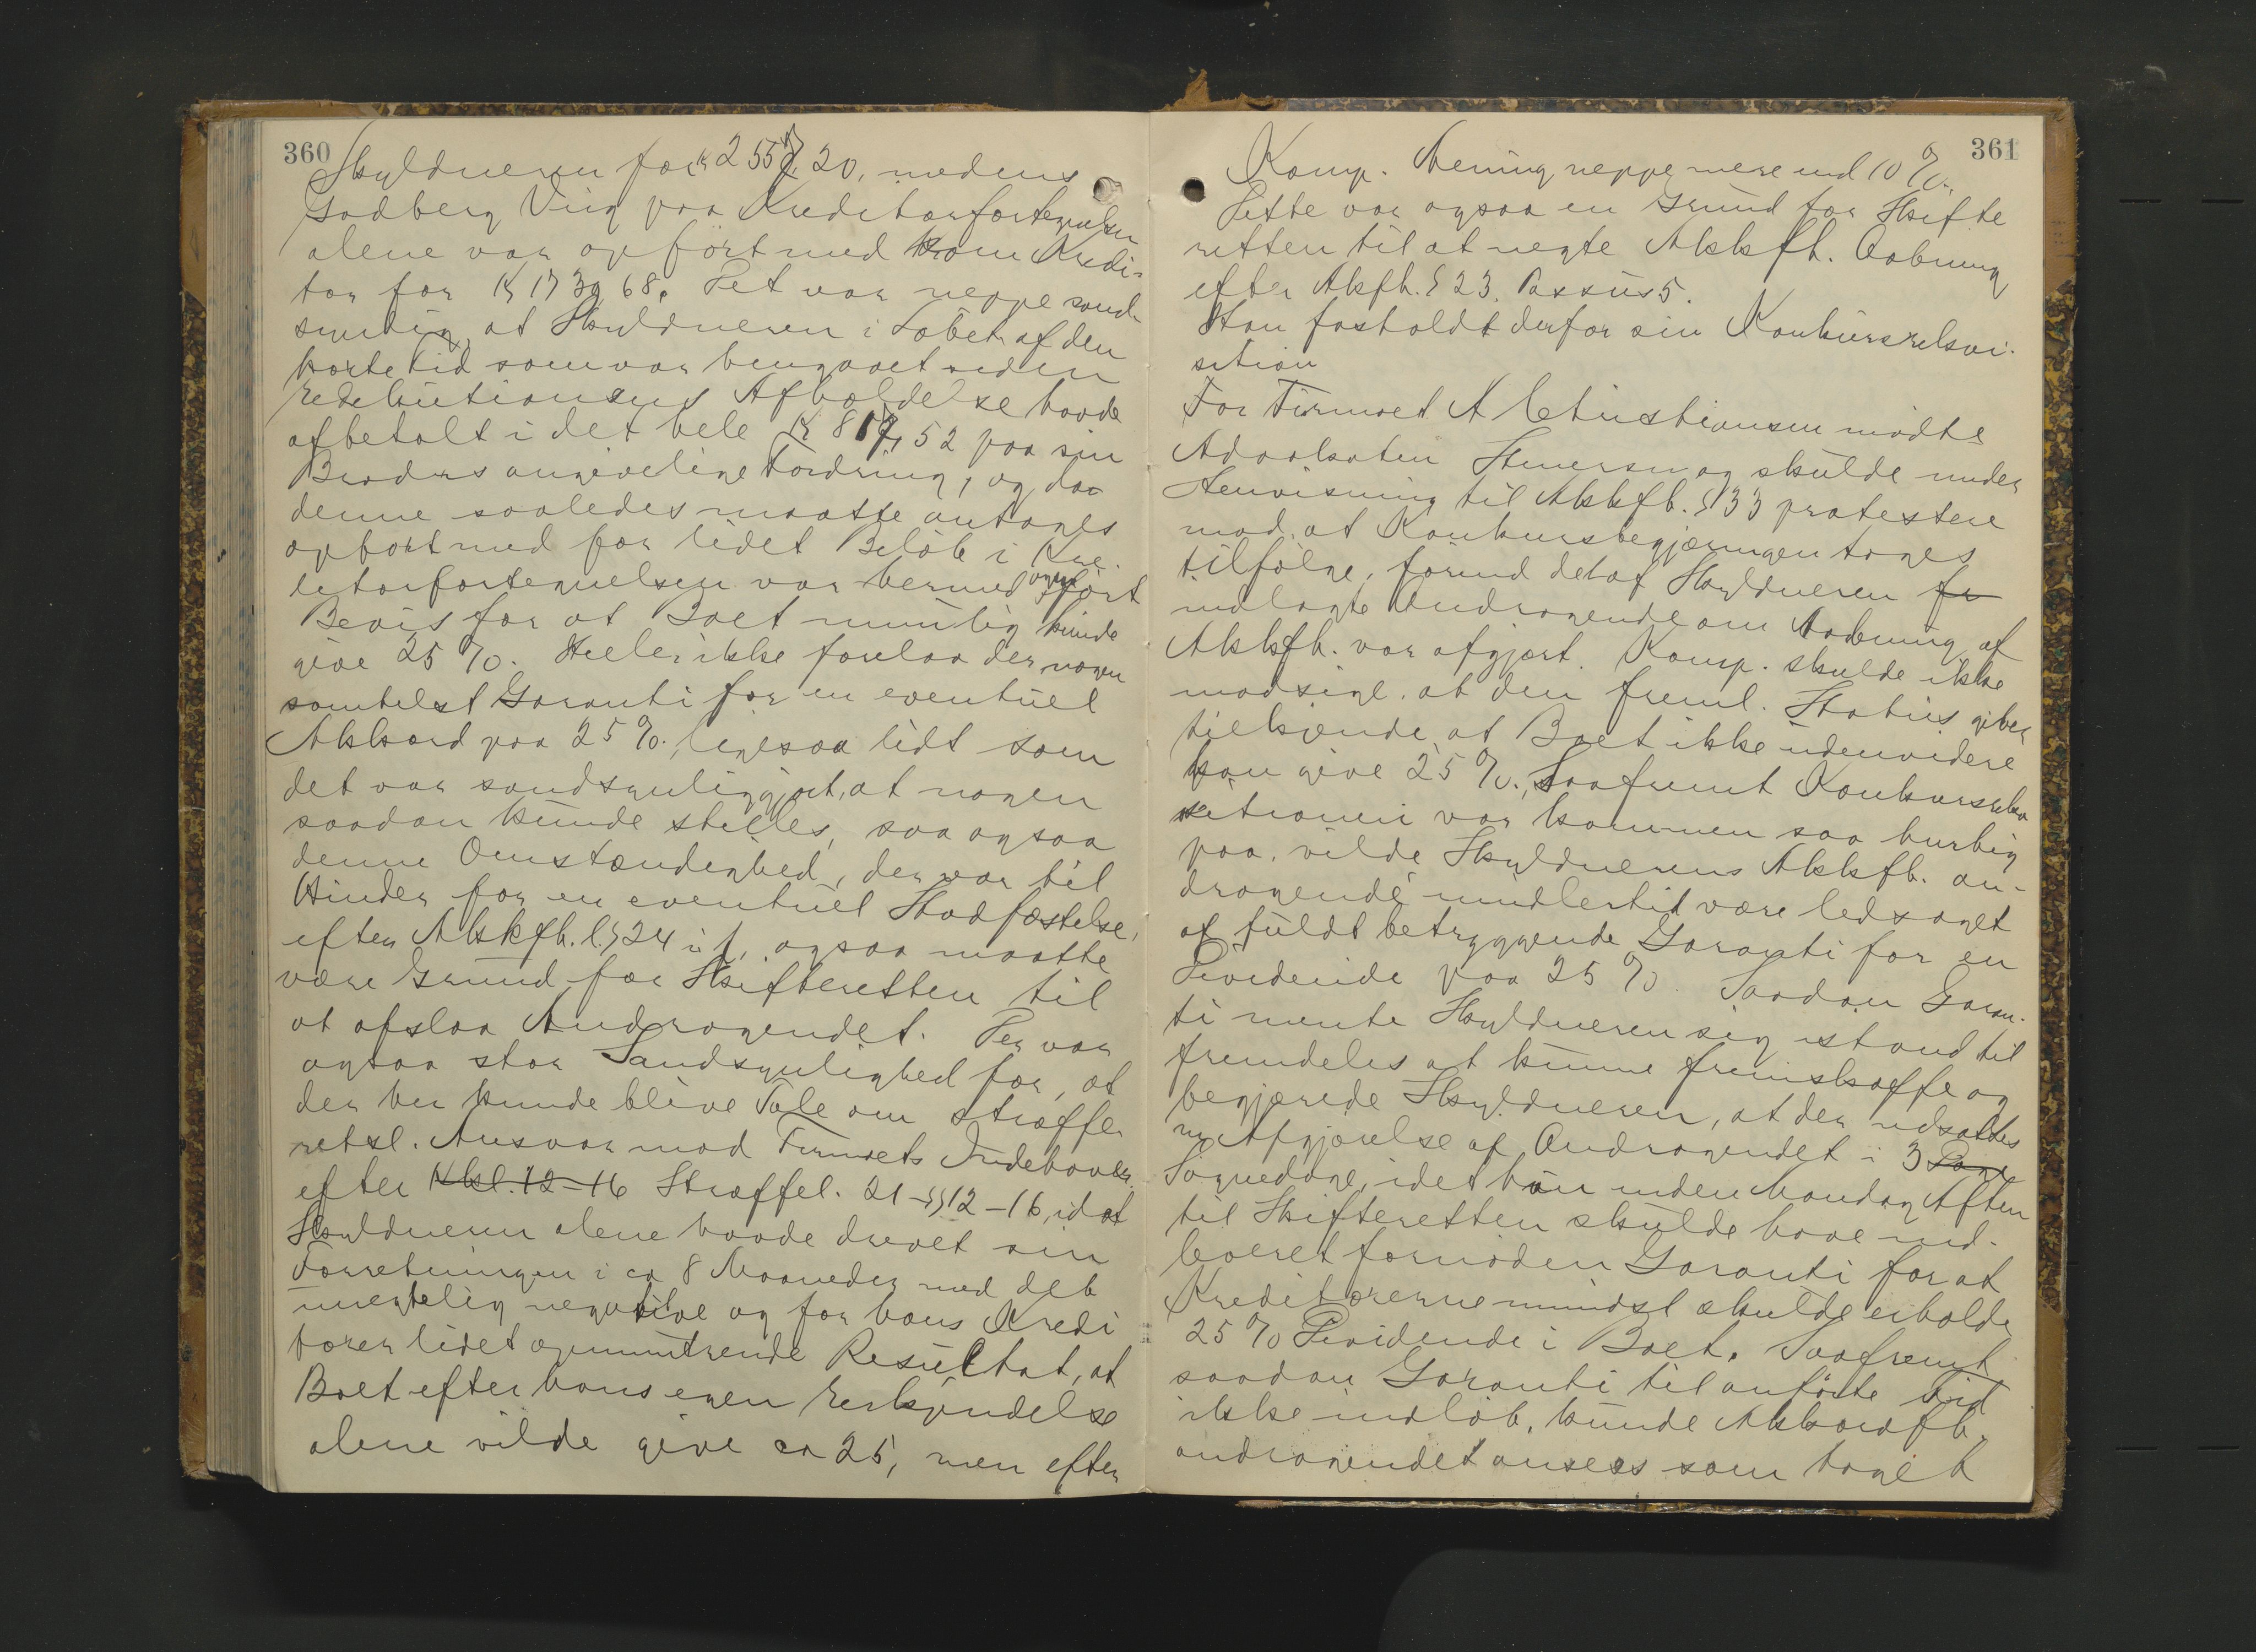 360
Skyldneren for Kr 2557,20, medens
Godberg Viig paa Kreditorfortegnelsen
alene var opført med som Kredi-
tor for Kr 1739,68. Det var neppe sand-
synlig, at Skyldneren i Løbet af den
korte Tid som var hengaaet siden
Exekutionens Afholdelse havde
afbetalt i det hele Kr 817,52 paa sin
Broders angivelige Fordring, og da
denne saaledes maatte antages
opført med for lidet Beløb i Kre-
ditorfortegnelsen var hermed ogsaa ført
Bevis for at Boet umulig kunde
give 25 %. Heller ikke forelaa der nogen
somhelst Garanti for en eventuel
Akkord paa 25 %, ligesaa lidt som
det var sandsynliggjort, at nogen
saadan kunde stilles, saa ogsaa
denne Omstændighed, der var til
Hinder for en eventuel Stadfæstelse,
efter Akkfh.l. § 24 i f, ogsaa maatte
være Grund for Skifteretten til
at afslaa Andragendet. Der var
ogsaa stor Sandsynlighed for, at
der her kunde blive Tale om straffe-
retsl. Ansvar mod Firmaets Indehaver
efter Kksl. 12-16 Straffel. 21-§§ 12-16, idet
Skyldneren alene havde drevet sin
Forretningen i ca 8 Maaneder med det
unegtelig negative og for hans Kredi
torer lidet opmuntrende Resultat, at
Boet efter hans egen Erkjendelse
alene vilde give ca 25, men efter
361
Komp. Mening neppe mere end 10 %.
Dette var ogsaa en Grund for Skifte
retten til at negte Akkfh. Aabning
efter Akfh. § 23. Passus 5.
Han fastholdt derfor sin Konkursrekvi-
sition
For Firmaet A Christiansen mødte
Advokaten Stenersen og skulde under
Henvisning til Akkfh. § 33 protestere
mod, at Konkursbegjæringen toges
tilfølge, førend det af Skyldneren fr
indlagte Andragende om Aabning af
Akkfh. var afgjort. Komp. skulde ikke
modsige, at den freml. Status giver
tilkjende, at Boet ikke udenvidere
kan give 25 %. Saafremt Konkursrekvi
sitionen var kommen saa hurtig
paa, vilde Skyldnerens Akkfh. an-
dragende imidlertid være ledsaget
af fuldt betryggende Garanti for en
Dividende paa 25 %. Saadan Garan-
ti mente Skyldneren sig istand til
fremdeles at kunne fremskaffe og
begjærede Skyldneren, at der udsattes
m Afgjørelse af Andragendet i 3 Dage
Søgnedage, idet han inden Mandag Aften
til Skifteretten skulde have ind-
leveret fornøden Garanti for at
Kreditorerne mindst skulde erholde
25 % Dividende i Boet. Saafremt
saadan Garanti til anførte Tid
ikke indløb, kunde Akkordfh.
andragendet ansees som taget